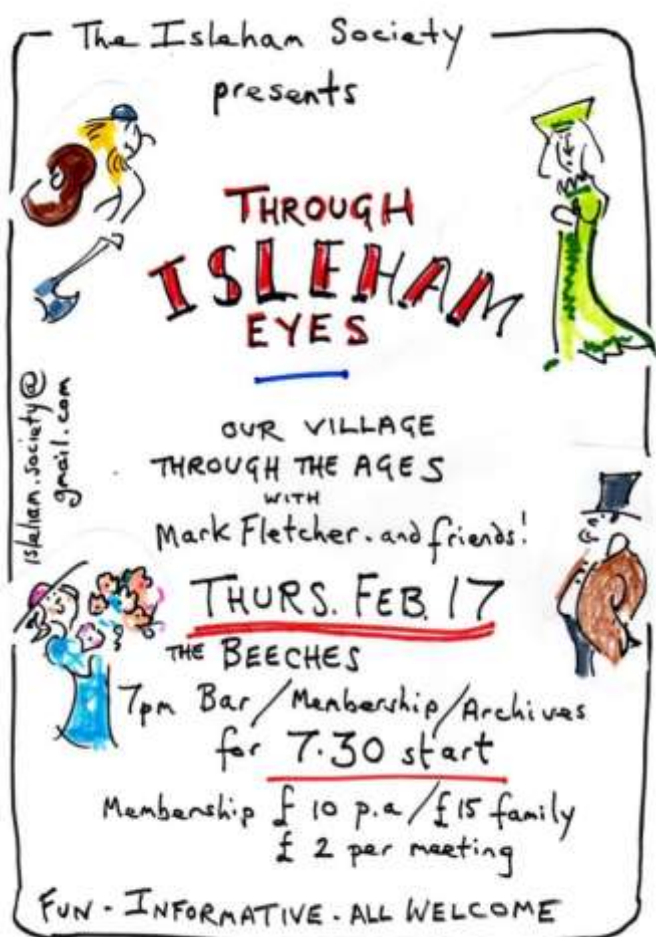 The Isleham Society
presents
THROUGH
ISLEHAM
EYES
isleham.society@
gmail.com
OUR VILLAGE
THROUGH THE AGES
WITH
Mark Fletcher. and friends!
THURS. FEB. 17
THE BEECHES
7pm Bar/Membership/Archives
for 7.30 start
Membership £ 10 p.a/£15 family
£ 2 per meeting
FUN - INFORMATIVE - ALL WELCOME